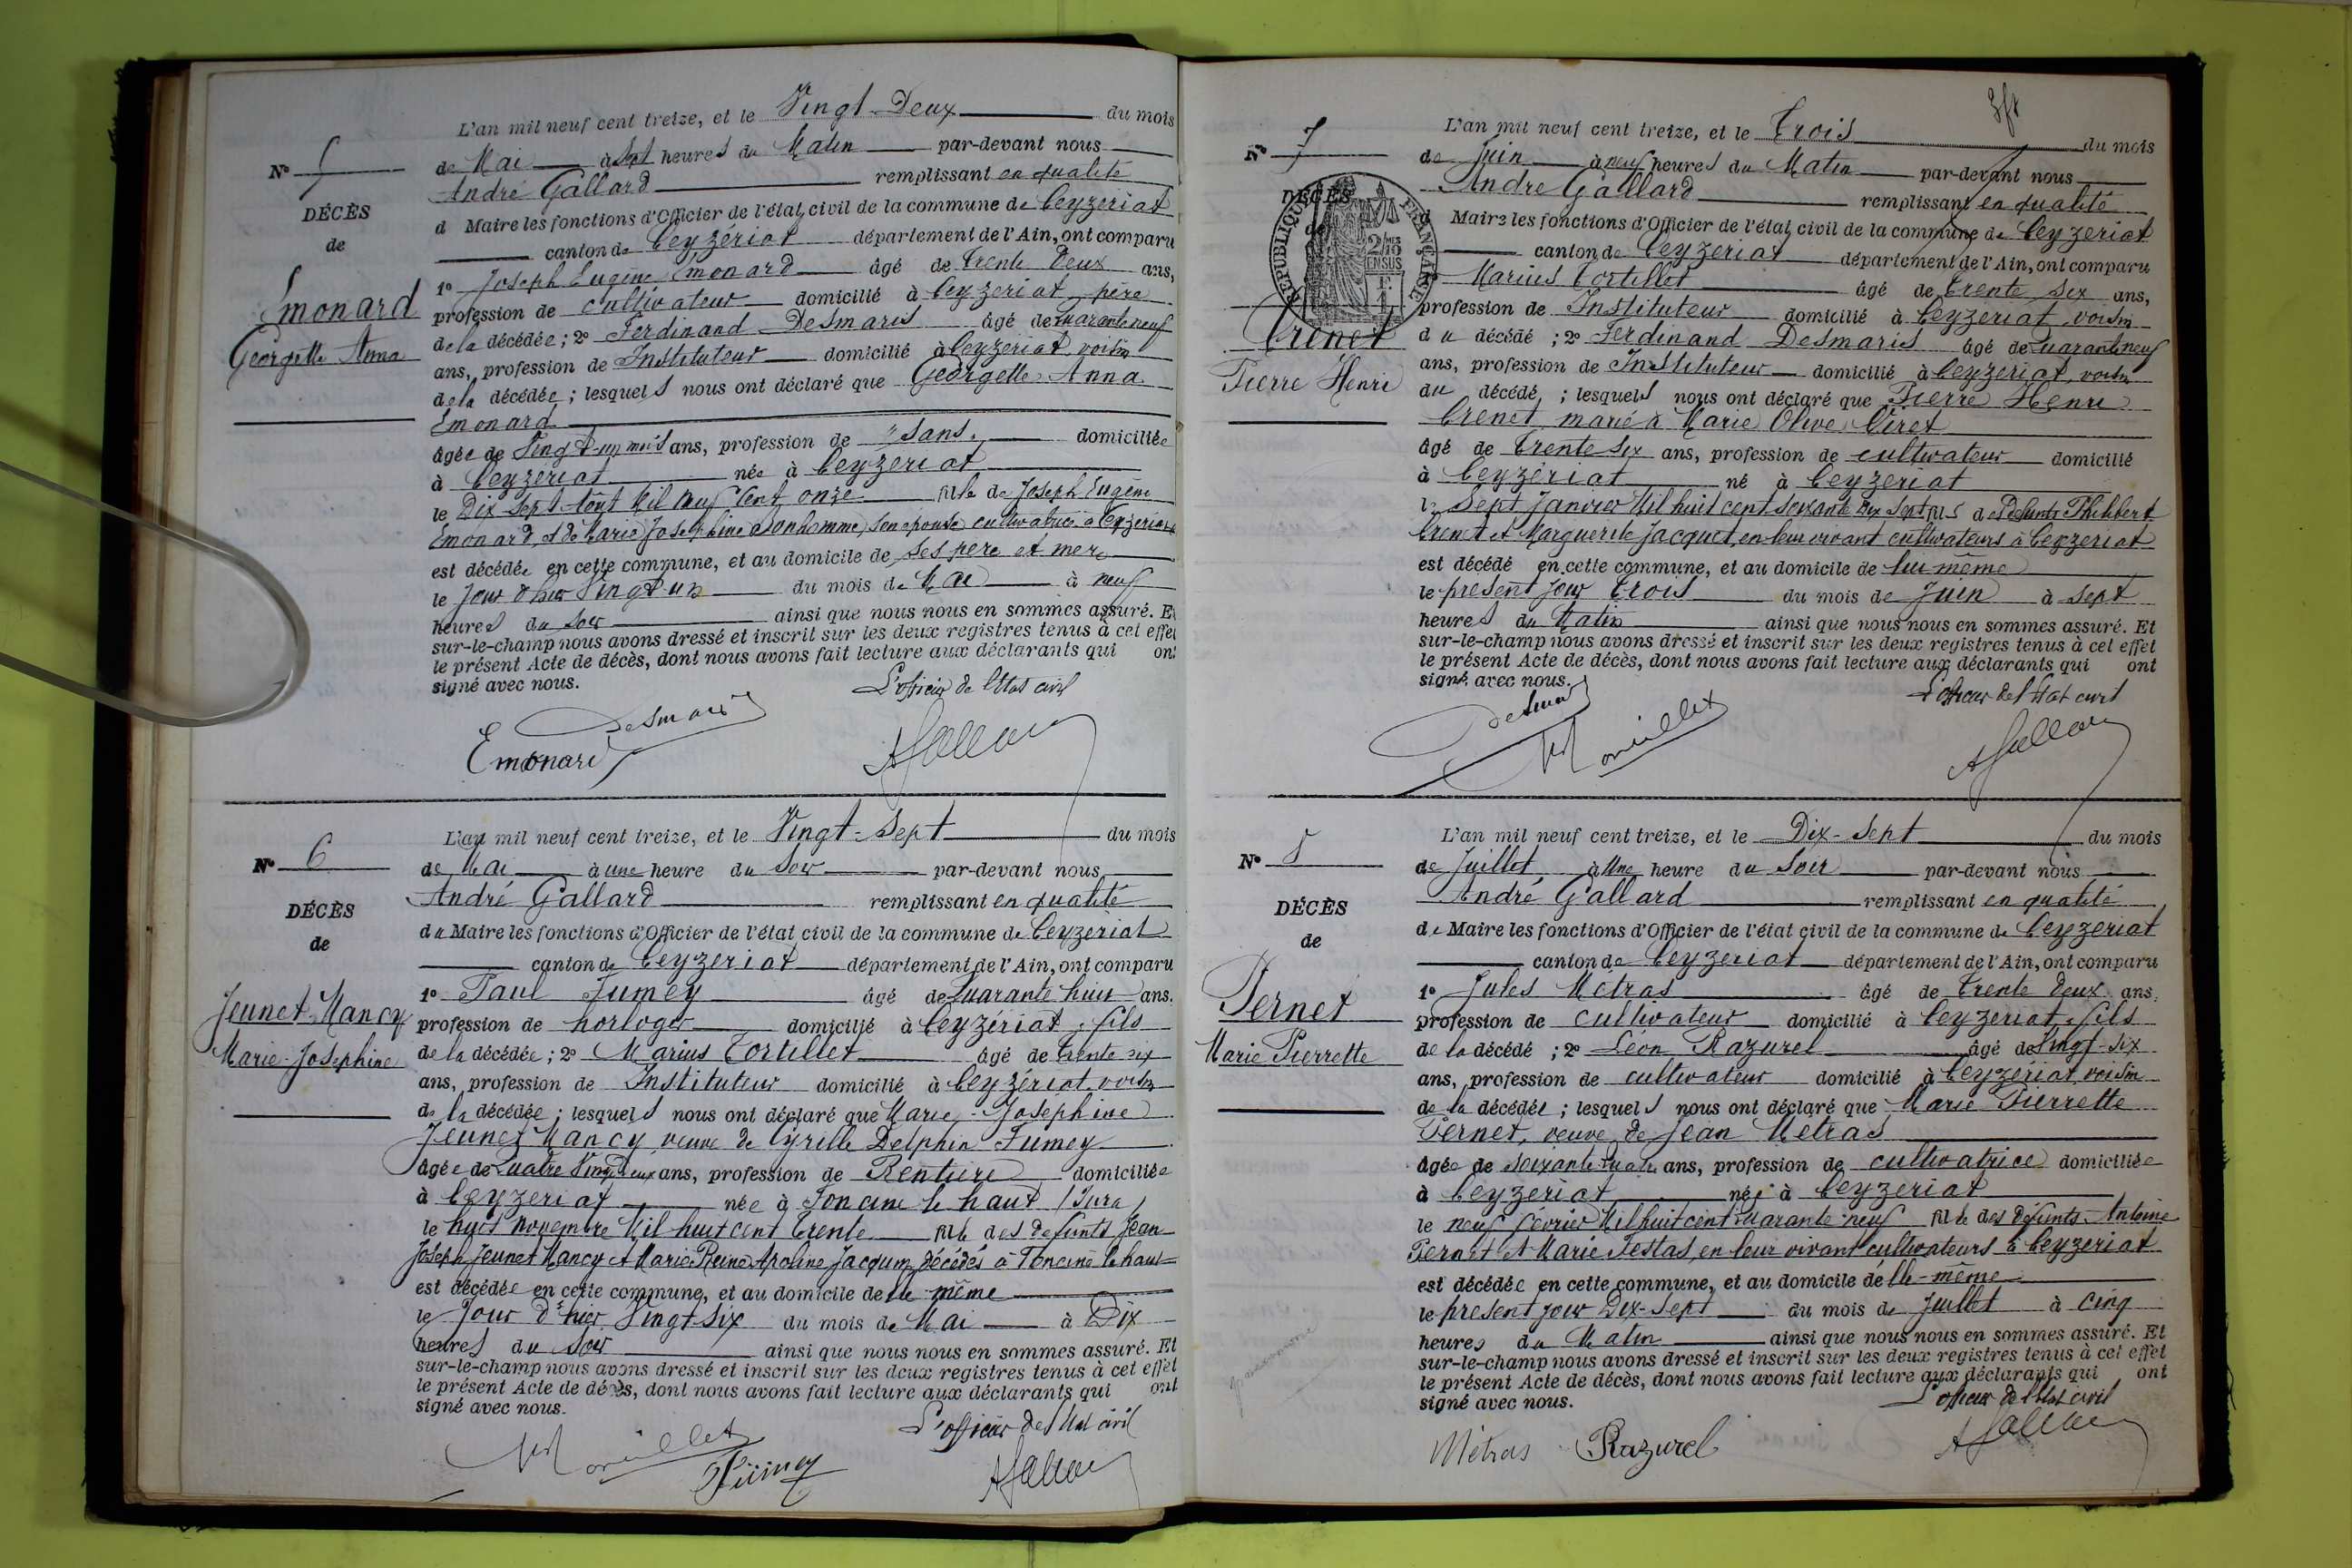 L'an mil neuf cent treize, et le Vingt-Deux du mois
de Mai à sept heures du Matin par-devant nous
André Gallard remplissant en qualité
d Maire les fonctions d'Officier de l'état civil de la commune de Ceyzériat
canton de Ceyzériat département de l'Ain, ont comparu
1o Joseph Eugène Emonard âgé de trente deux ans,
profession de cultivateur domicilié à Ceyzériat père
de la décédée ; 2o Ferdinand Desmaris âgé de quarante neuf
ans, profession de Instituteur domicilié à Ceyzériat, voisin
de la décédée ; lesquels nous ont déclaré que Georgette Anna
Emonard
âgée de Vingt-un mois ans, profession de "sans" domiciliée
à Ceyzériat née à Ceyzériat
le Dix sept Août Mil neuf cent onze fille de Joseph Eugène
Emonard, et de Marie Joséphine Bonhomme, son épouse cultivatrice à Ceyzériat
est décédée en cette commune, et au domicile de ses père et mère
le jour d'hier Vingt-un du mois de Mai à neuf
heures du soir ainsi que nous nous en sommes assuré. Et
sur-le-champ nous avons dressé et inscrit sur les deux registres tenus à cet effet
le présent Acte de décès, dont nous avons fait lecture aux déclarants qui ont
signé avec nous.
L'officier de l'Etat civil
Desmaris
Emonard
AGallard
No 5
DÉCÈS
de
Emonard
Georgette Anna
L'an mil neuf cent treize, et le Vingt-Sept du mois
de Mai à une heure du Soir par-devant nous
André Gallard remplissant en qualité
du Maire les fonctions d'Officier de l'état civil de la commune de Ceyzériat
canton de Ceyzériat département de l'Ain, ont comparu
1o Paul Fumey âgé de Quarante huit ans.
profession de horloger domicilié à Ceyzériat, fils
de la décédée ; 2o Marius Tortillet âgé de trente six
ans, profession de Instituteur domicilié à Ceyzériat, voisin
de la décédée ; lesquels nous ont déclaré que Marie-Joséphine
Jeunet Mancy, veuve de Cyrille Delphin Fumey
âgée de Quatre Vingt deux ans, profession de Rentière domiciliée
à Ceyzériat née à Foncine le haut (Jura)
le huit novembre Mil huit cent trente fille des défunts Jean
Joseph Jeunet Mancy et Marie Reine Apoline Jacquin, décédés à Foncine le haut
est décédée en cette commune, et au domicile de elle-même
le Jour d'hier Vingt-six du mois de Mai à Dix
heures du soir ainsi que nous nous en sommes assuré. Et
sur-le-champ nous avons dressé et inscrit sur les deux registres tenus à cet effet
le présent Acte de décès, dont nous avons fait lecture aux déclarants qui ont
signé avec nous.
L'officier de l'Etat civil
Fumey
AGallard
No 6
DÉCÈS
de
Jeunet-Mancy
Marie-Joséphine
L'an mil neuf cent treize, et le Trois du mois
de Juin à neuf heures du Matin par-devant nous
André Gallard remplissant en qualité
d Maire les fonctions d'Officier de l'état civil de la commune de Ceyzériat
canton de Ceyzériat département de l'Ain, ont comparu
Marius Tortillet âgé de trente six ans,
profession de Instituteur domicilié à Ceyzériat, voisin
du décédé ; 2o Ferdinand Desmaris âgé de quarante neuf
ans, profession de Instituteur domicilié à Ceyzériat, voisin
du décédé ; lesquels nous ont déclaré que Pierre Henri
Crenet, marié à Marie Olive Viret
âgé de trente six ans, profession de cultivateur domicilié
à Ceyzériat né à Ceyzériat
le Sept Janvier Mil huit cent soixante Dix Sept fils de Défunts Philibert
Crenet et Marguerite Jacquet, en leur vivant cultivateurs à Ceyzériat
est décédé en cette commune, et au domicile de lui même
le présent jour trois du mois de Juin à sept
heures du Matin ainsi que nous nous en sommes assuré. Et
sur-le-champ nous avons dressé et inscrit sur les deux registres tenus à cet effet
le présent Acte de décès, dont nous avons fait lecture aux déclarants qui ont
signé avec nous.
L'officier de l'Etat civil
AGallard
No 7
DÉCÈS
de
RÉPUBLIQUE FRANÇAISE
2/10 EN SUS
Crenet
Pierre Henri
L'an mil neuf cent treize, et le Dix-Sept du mois
de Juillet à Une heure du Soir par-devant nous
André Gallard remplissant en qualité
de Maire les fonctions d'Officier de l'état civil de la commune de Ceyzériat
canton de Ceyzériat département de l'Ain, ont comparu
1o Jules Métras âgé de trente deux ans,
profession de cultivateur domicilié à Ceyzériat, fils
de la décédé ; 2o Léon Razurel âgé de Vingt-six
ans, profession de cultivateur domicilié à Ceyzériat, voisin
de la décédée ; lesquels nous ont déclaré que Marie Pierrette
Pernet, veuve de Jean Métras
âgée de soixante quatre ans, profession de cultivatrice domiciliée
à Ceyzériat née à Ceyzériat
le neuf février Mil huit cent quarante-neuf fille des défunts Antoine
Pernet et Marie Festas, en leur vivant cultivateurs à Ceyzériat
est décédée en cette commune, et au domicile d'elle-même
le présent jour Dix-Sept du mois de Juillet à cinq
heures du Matin ainsi que nous nous en sommes assuré. Et
sur-le-champ nous avons dressé et inscrit sur les deux registres tenus à cet effet
le présent Acte de décès, dont nous avons fait lecture aux déclarants qui ont
signé avec nous.
L'officier de l'Etat civil
Métras Razurel
AGallard
No 8
DÉCÈS
de
Pernet
Marie Pierrette